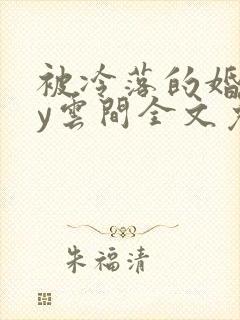 被冷落的婚
y雲間全文
朱福清